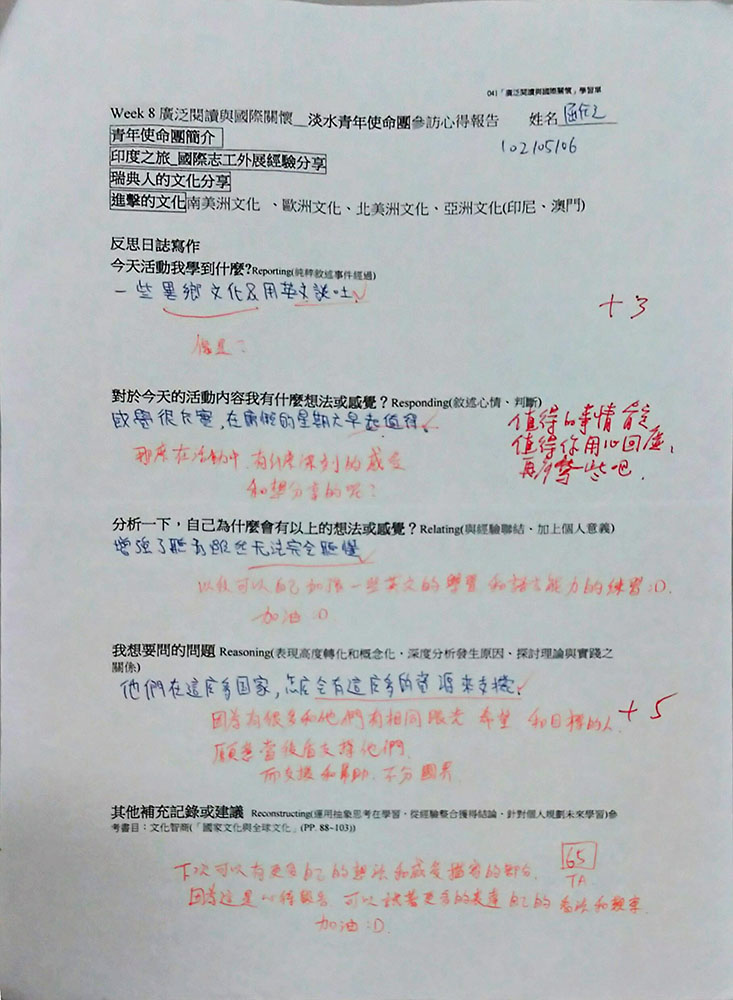 041「廣泛閱讀與國際關懷」學習單
Week 8 廣泛閱讀與國際關懷__淡水青年使命團參訪心得報告 姓名
102/05/06
青年使命團簡介
印度之旅_國際志工外展經驗分享
瑞典人的文化分享
進擊的文化南美洲文化 、歐洲文化、北美洲文化、亞洲文化(印尼、澳門)
反思日誌寫作
今天活動我學到什麼?Reporting(純粹敘述事件經過)
一些異鄉文化及用英文談吐
+3
像是?
對於今天的活動內容我有什麼想法或感覺？Responding(敘述心情、判斷)
感覺很充實,在慵懶的星期六早起值得。
值得的事情肯定
值得你用心回應,
再多寫些吧.
那麼在活動中,有什麼深刻的感受
和想分享的呢?
分析一下，自己為什麼會有以上的想法或感覺？Relating(與經驗聯結、加上個人意義)
增強了聽力雖然无法完全聽懂
以後可以自己加強一些英文的學習和語言能力的練習:D.
加油:D
我想要問的問題 Reasoning(表現高度轉化和概念化，深度分析發生原因、探討理論與實踐之
關係)
他們在這麼多国家,怎麼会有這麼多的資源來支援
因為有很多和他們有相同眼光 希望 和目標的人
+5
願意當後盾支撐他們.
而支援和幫助,不分國界.
其他補充記錄或建議 Reconstructing(運用抽象思考在學習，從經驗整合獲得結論，針對個人規劃未來學習)參
考書目：文化智商(「國家文化與全球文化」(PP. 88~103))
65
TA
下次可以有更多自己的想法和感受描寫的部分.
因為這是心得報告,可以試著更多的表達自己的看法和觀察.
加油:D.